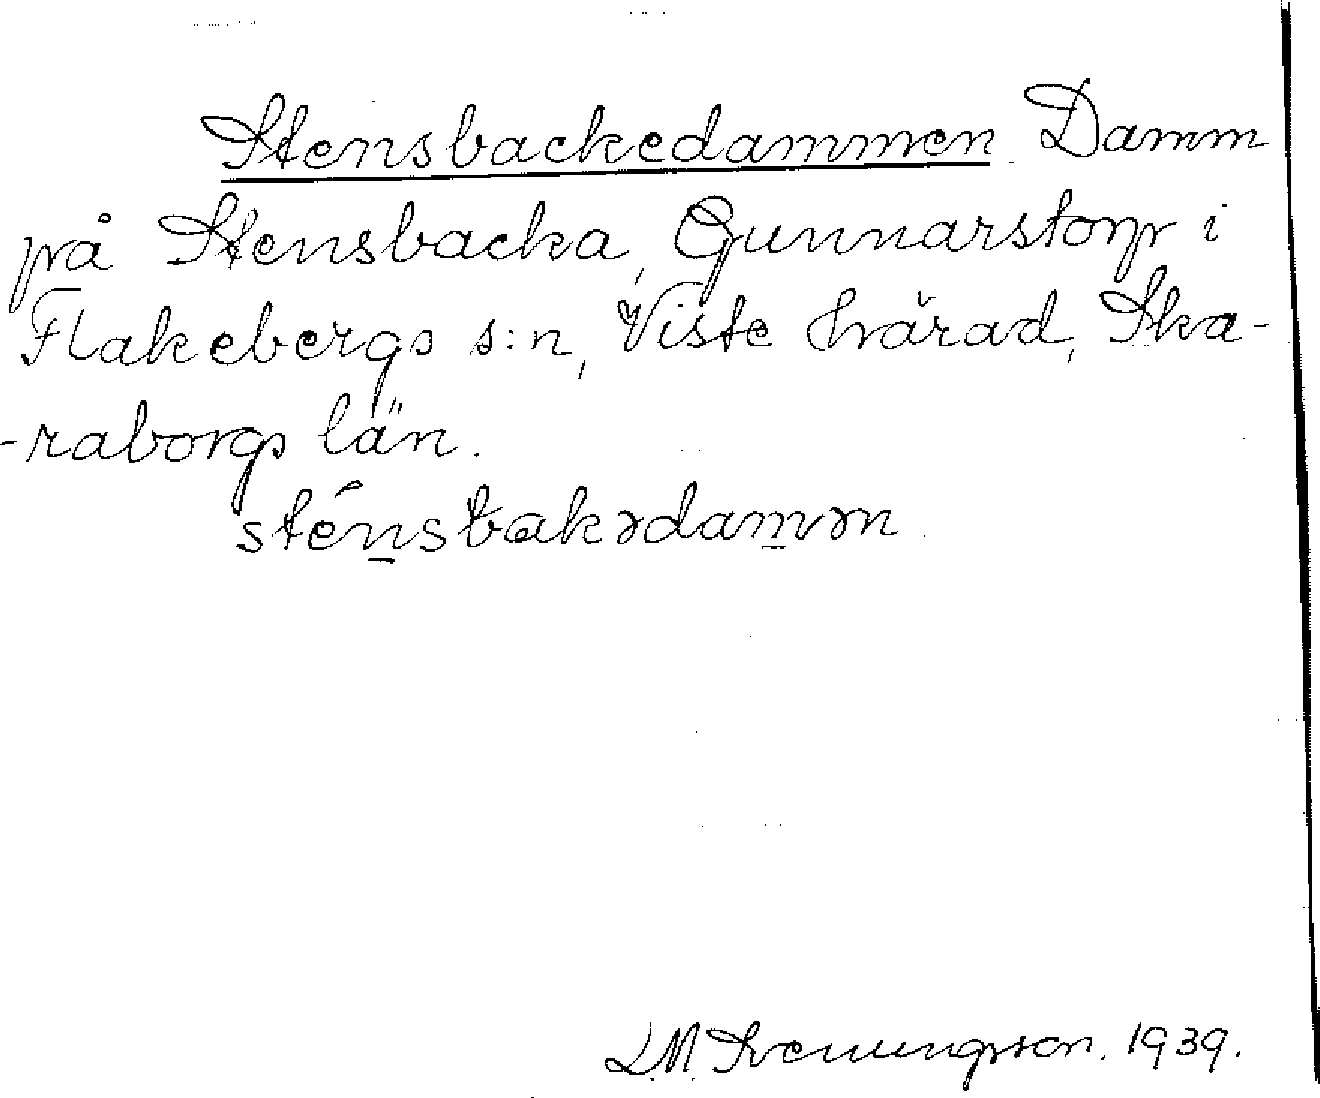 Stensbackedammen Damm
på Stensbacka, Gunnarstorp i
Flakebergs s:n, Viste härad, Ska-
-raborgs län.
sténsbakədamən
L.M. Svenungsson. 1939.